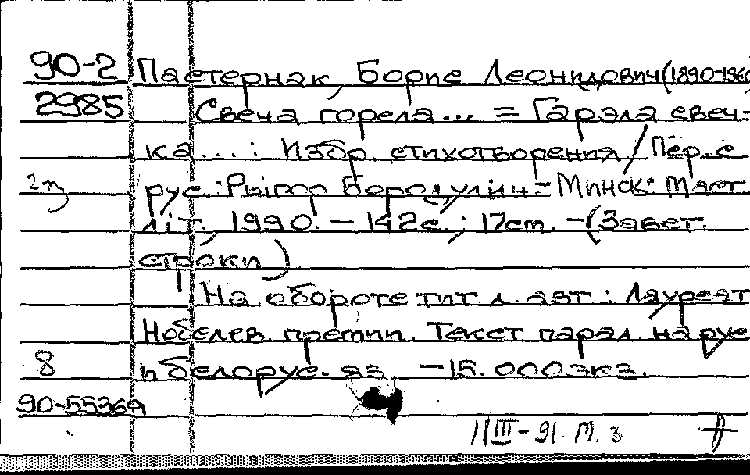 90-2 Пастернак, Борис Леонидович (1890-1960
2985 Свеча горела... = Гарэла свеч-
ка...: Избр. стихотворения / Пер. с
2 рус.: Рыгор Бородулин. - Минск: Маст.
літ., 1990. - 142с.; 17см. - (Завет.
строки)
На обороте тит. л. авт.: Лауреат
Нобелев. премии. Текст парал. на рус.
8 и белорус. яз. - 15.000экз.
90-55364
11 III-91. М. З